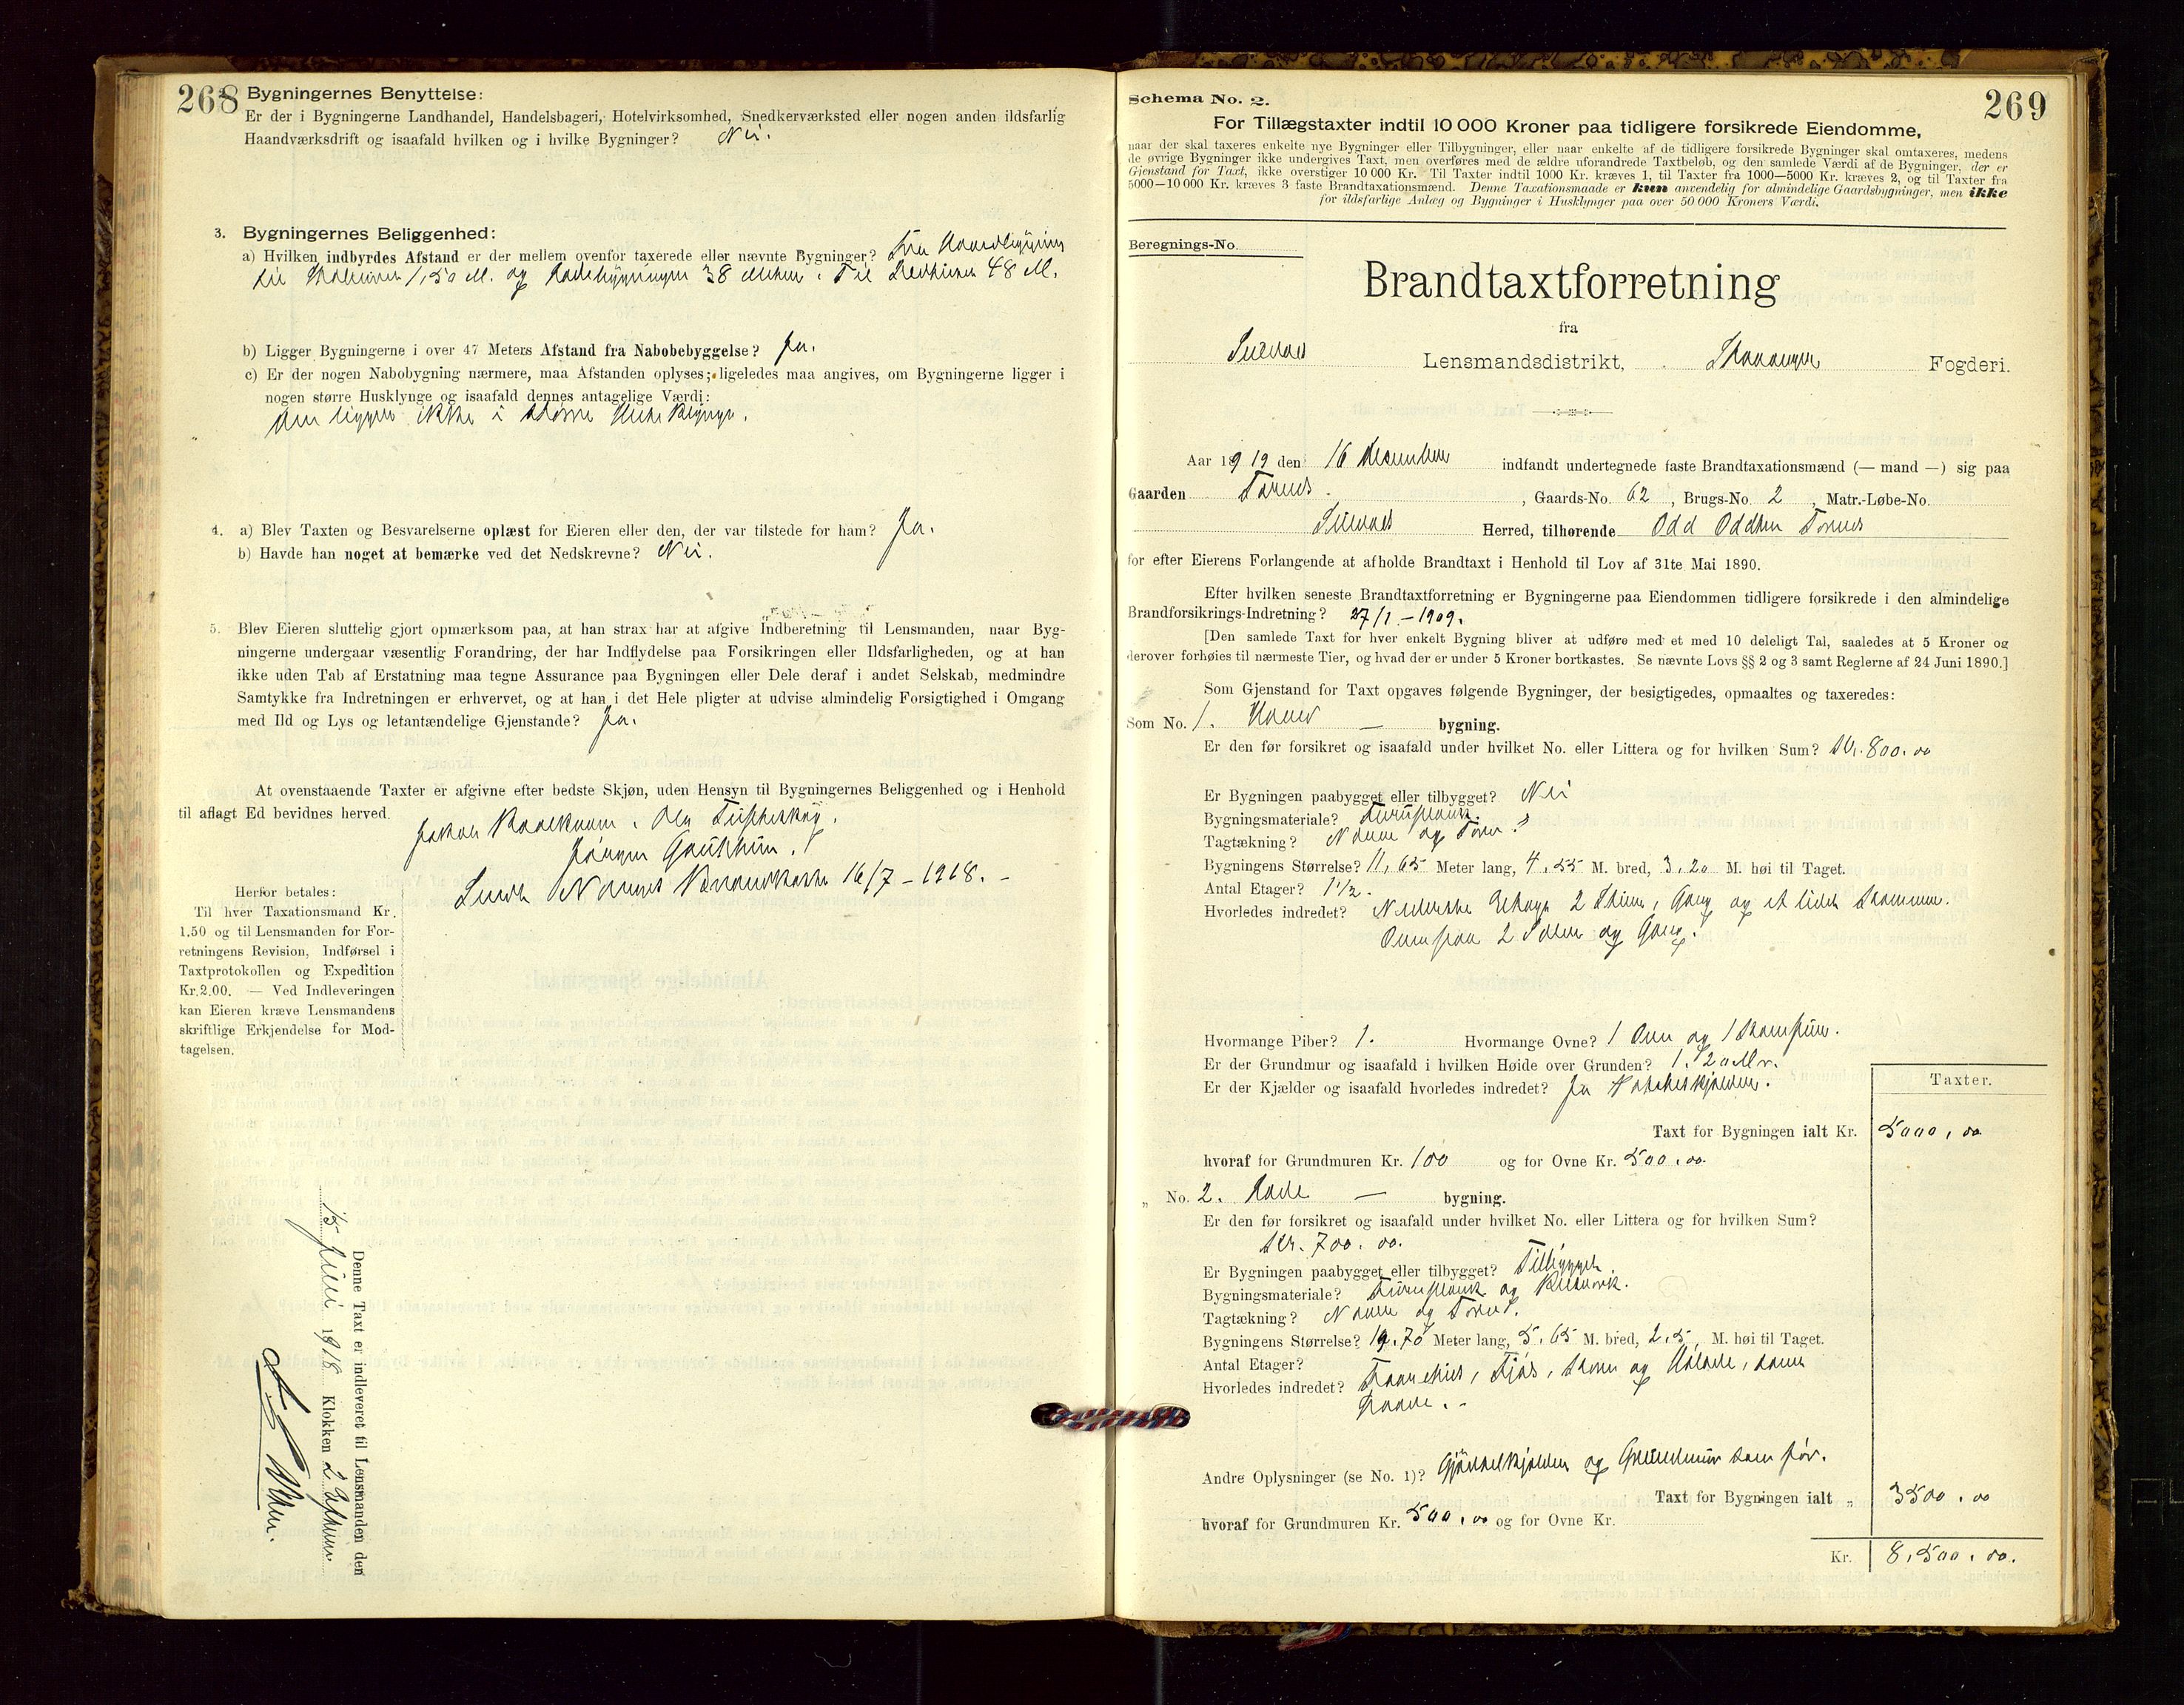 268
Bygningernes Benyttelse:
Er der i Bygningerne Landhandel, Handelsbageri, Hotelvirksomhed, Snedkerværksted eller nogen anden ildsfarlig
Haandværksdrift og isaafald hvilken og i hvilke Bygninger? Nei.
3. Bygningernes Beliggenhed:
a) Hvilken indbyrdes Afstand er der mellem ovenfor taxerede eller nævnte Bygninger? Fra
til 1,50 M. og Ladebygningen 38 Meter. Til 48 M.
b) Ligger Bygningerne i over 47 Meters Afstand fra Nabobebyggelse? Ja.
c) Er der nogen Nabobygning nærmere, maa Afstanden oplyses; ligeledes maa angives, om Bygningerne ligger i
nogen større Husklynge og isaafald dennes antagelige Værdi:
ligger ikke i større
4. a) Blev Taxten og Besvarelserne oplæst for Eieren eller den, der var tilstede for ham? Ja.
b) Havde han noget at bemærke ved det Nedskrevne? Nei.
5. Blev Eieren sluttelig gjort opmærksom paa, at han strax har at afgive Indberetning til Lensmanden, naar Byg-
ningerne undergaar væsentlig Forandring, der har Indflydelse paa Forsikringen eller Ildsfarligheden, og at han
ikke uden Tab af Erstatning maa tegne Assurance paa Bygningen eller Dele deraf i andet Selskab, medmindre
Samtykke fra Indretningen er erhvervet, og at han i det Hele pligter at udvise almindelig Forsigtighed i Omgang
med Ild og Lys og letantændelige Gjenstande? Ja.
At ovenstaaende Taxter er afgivne efter bedste Skjøn, uden Hensyn til Bygningernes Beliggenhed og i Henhold
til aflagt Ed bevidnes herved.
16/7-1918.
Herfor betales:
Til hver Taxationsmand Kr.
1.50 og til Lensmanden for For-
retningens Revision, Indførsel i
Taxtprotokollen og Expedition
Kr.2.00. — Ved Indleveringen
kan Eieren kræve Lensmandens
skriftlige Erkjendelse for Mod-
tagelsen.
Denne Taxt er indleveret til Lensmanden den
15 Juli 1918 Klokken 2
269
Schema No. 2.
For Tillægstaxter indtil 10 000 Kroner paa tidligere forsikrede Eiendomme,
naar der skal taxeres enkelte nye Bygninger eller Tilbygninger, eller naar enkelte af de tidligere forsikrede Bygninger skal omtaxeres, medens
de øvrige Bygninger ikke undergives Taxt, men overføres med de ældre uforandrede Taxtbeløb, og den samlede Værdi af de Bygninger, der er
Gjenstand for Taxt, ikke overstiger 10 000 Kr. Til Taxter indtil 1000 Kr. kræves 1, til Taxter fra 1000—5000 Kr. kræves 2, og til Taxter fra
5000—10 000 Kr. kræves 3 faste Brandtaxationsmænd. Denne Taxationsmaade er kun anvendelig for almindelige Gaardsbygninger, men ikke
for ildsfarlige Anlæg og Bygninger i Husklynger paa over 50 000 Kroners Værdi.
Beregnings-No.
Brandtaxtforretning
fra
Lensmandsdistrikt, Stavanger Fogderi.
Aar 1919 den 16 December indfandt undertegnede faste Brandtaxationsmænd (— mand —) sig paa
Gaarden , Gaards-No. 62, Brugs-No. 2, Matr.-Løbe-No.
Herred, tilhørende Odd Oddsen
for efter Eierens Forlangende at afholde Brandtaxt i Henhold til Lov af 31te Mai 1890.
Efter hvilken seneste Brandtaxtforretning er Bygningerne paa Eiendommen tidligere forsikrede i den almindelige
Brandforsikrings-Indretning? 27/1-1909.
[Den samlede Taxt for hver enkelt Bygning bliver at udføre med et med 10 deleligt Tal, saaledes at 5 Kroner og
derover forhøies til nærmeste Tier, og hvad der er under 5 Kroner bortkastes. Se nævnte Lovs §§ 2 og 3 samt Reglerne af 24 Juni 1890.]
Som Gjenstand for Taxt opgaves følgende Bygninger, der besigtigedes, opmaaltes og taxeredes:
Som No. 1. — bygning.
Er den før forsikret og isaafald under hvilket No. eller Littera og for hvilken Sum? Kr. 800.00
Er Bygningen paabygget eller tilbygget? Nei
Bygningsmateriale?
Tagtækning? og
Bygningens Størrelse? 11,65 Meter lang, 4,55 M. bred, 3,20 M. høi til Taget.
Antal Etager? 1½.
Hvorledes indredet? Nederste Etage 2 Stuer, Gang og et lidet Kammer.
Ovenpaa 2 og Gang.
Hvormange Piber? 1. Hvormange Ovne? 1 Ovn og 1 Komfur.
Er der Grundmur og isaafald i hvilken Høide over Grunden? 1,20 Mr.
Er der Kjælder og isaafald hvorledes indredet? Ja
Taxter.
Taxt for Bygningen ialt Kr. 5000,00
hvoraf for Grundmuren Kr. 100 og for Ovne Kr. 500,00.
„ No. 2. Lade — bygning.
Er den før forsikret og isaafald under hvilket No. eller Littera og for hvilken Sum?
Kr. 700.00.
Er Bygningen paabygget eller tilbygget? Tilbygget.
Bygningsmateriale? og
Tagtækning? og
Bygningens Størrelse? 19.70 Meter lang, 5,65 M. bred, 2,5 M. høi til Taget.
Antal Etager?
Hvorledes indredet? Faarehus, Fjøs, og Lade, samt
Andre Oplysninger (se No. 1)? Gjødselkjælder og Grundmur som før.
Taxt for Bygningen ialt „ 3500.00
hvoraf for Grundmuren Kr. 500,00 og for Ovne Kr.
Kr. 8,500.00.